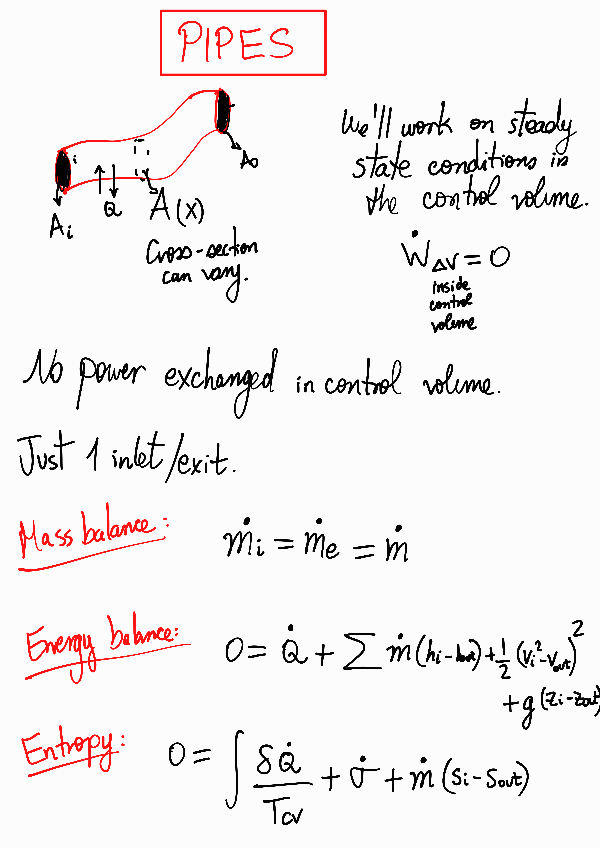 PIPES
Ao
Ai
Q
A(x)
Cross-section
can vary.
We'll work on steady
state conditions in
the control volume.
Ẇ_ΔV = 0
inside
control
volume
No power exchanged in control volume.
Just 1 inlet/exit.
Mass balance: ṁi = ṁe = ṁ
Energy balance: 0 = Q̇ + ∑ ṁ(hi-hout) + 1/2 (Vi²-Vout)²
+ g(zi-zout)
Entropy: 0 = ∫ δQ̇/Tcv + σ̇ + ṁ (si-sout)